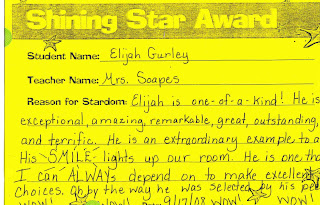 Shining Star Award
Student Name: Elijah Gurley
Teacher Name: Mrs. Soapes
Reason for Stardom: Elijah is one-of-a-kind! He is
exceptional, amazing, remarkable, great, outstanding,
and terrific. He is an extraordinary example to a
His SMILE lights up our room. He is one tha
I can ALWAYS depend on to make excellent
Choices. Oh by the way he was selected by his pe
WOW! WOW! 9/12/08 WOW! WOW!